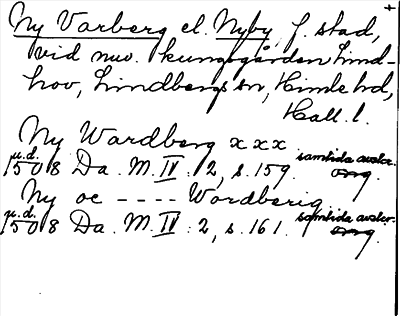 Ny Varberg el. Nyby, f. stad,
vid nuv. kungsgården Lind-
hov, Lindbergs sn, Himle hd,
Hall. l.
Ny Wardberg x x x
u.d. 1508 Da. M. IV : 2, s. 159. samtida avskr. orig.
Ny oc - - - - Wardberig
u.d. 1508 Da. M. IV : 2, s. 161. samtida avskr. orig.